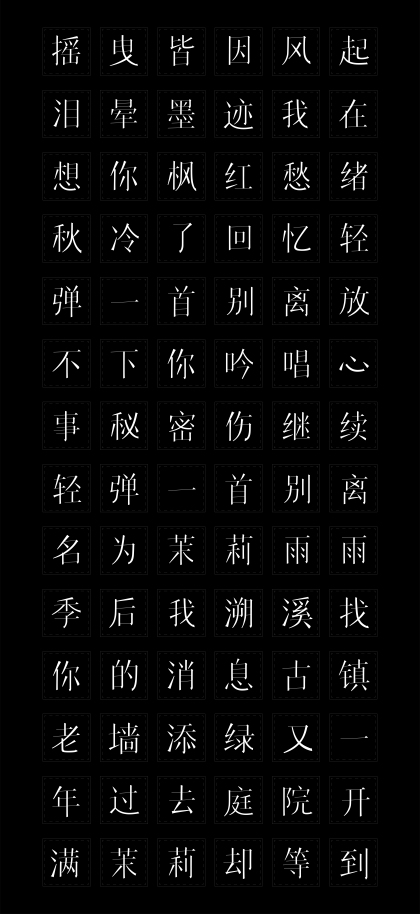 摇曳皆因风起
泪晕墨迹我在
想你枫红愁绪
秋冷了回忆轻
弹一首别离放
不下你吟唱心
事秘密伤继续
轻弹一首别离
名为茉莉雨雨
季后我溯溪找
你的消息古镇
老墙添绿又一
年过去庭院开
满茉莉却等到